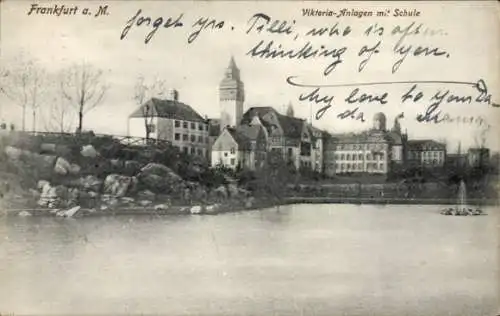 Frankfurt a. M.
Viktoria-Anlagen mit Schule
forget yrs. Tilli,
who is often
thinking of you.
my love to your Da
da + Mama